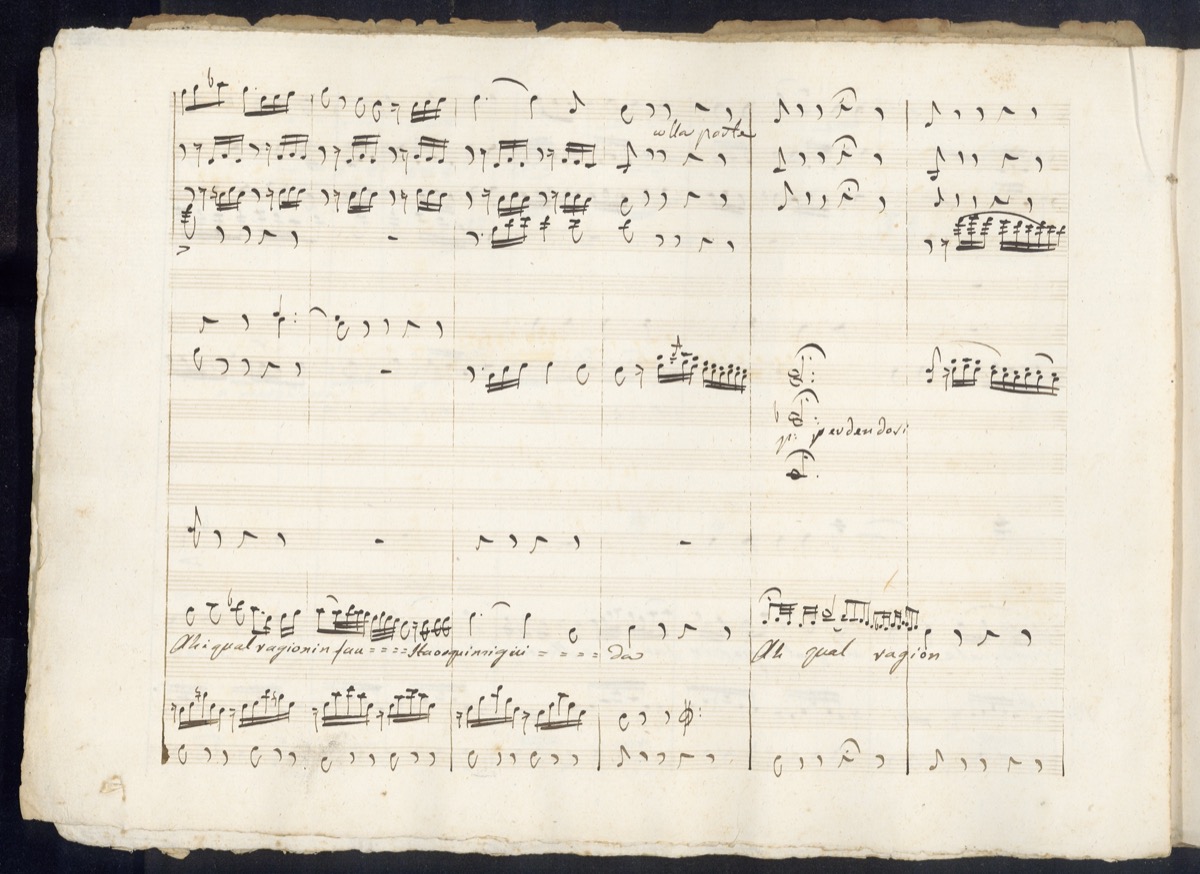 colla parte
p: perdendosi
Ahi qual ragion in fau = = = = sta o qui mi gui = = = = da
Ah qual ragion